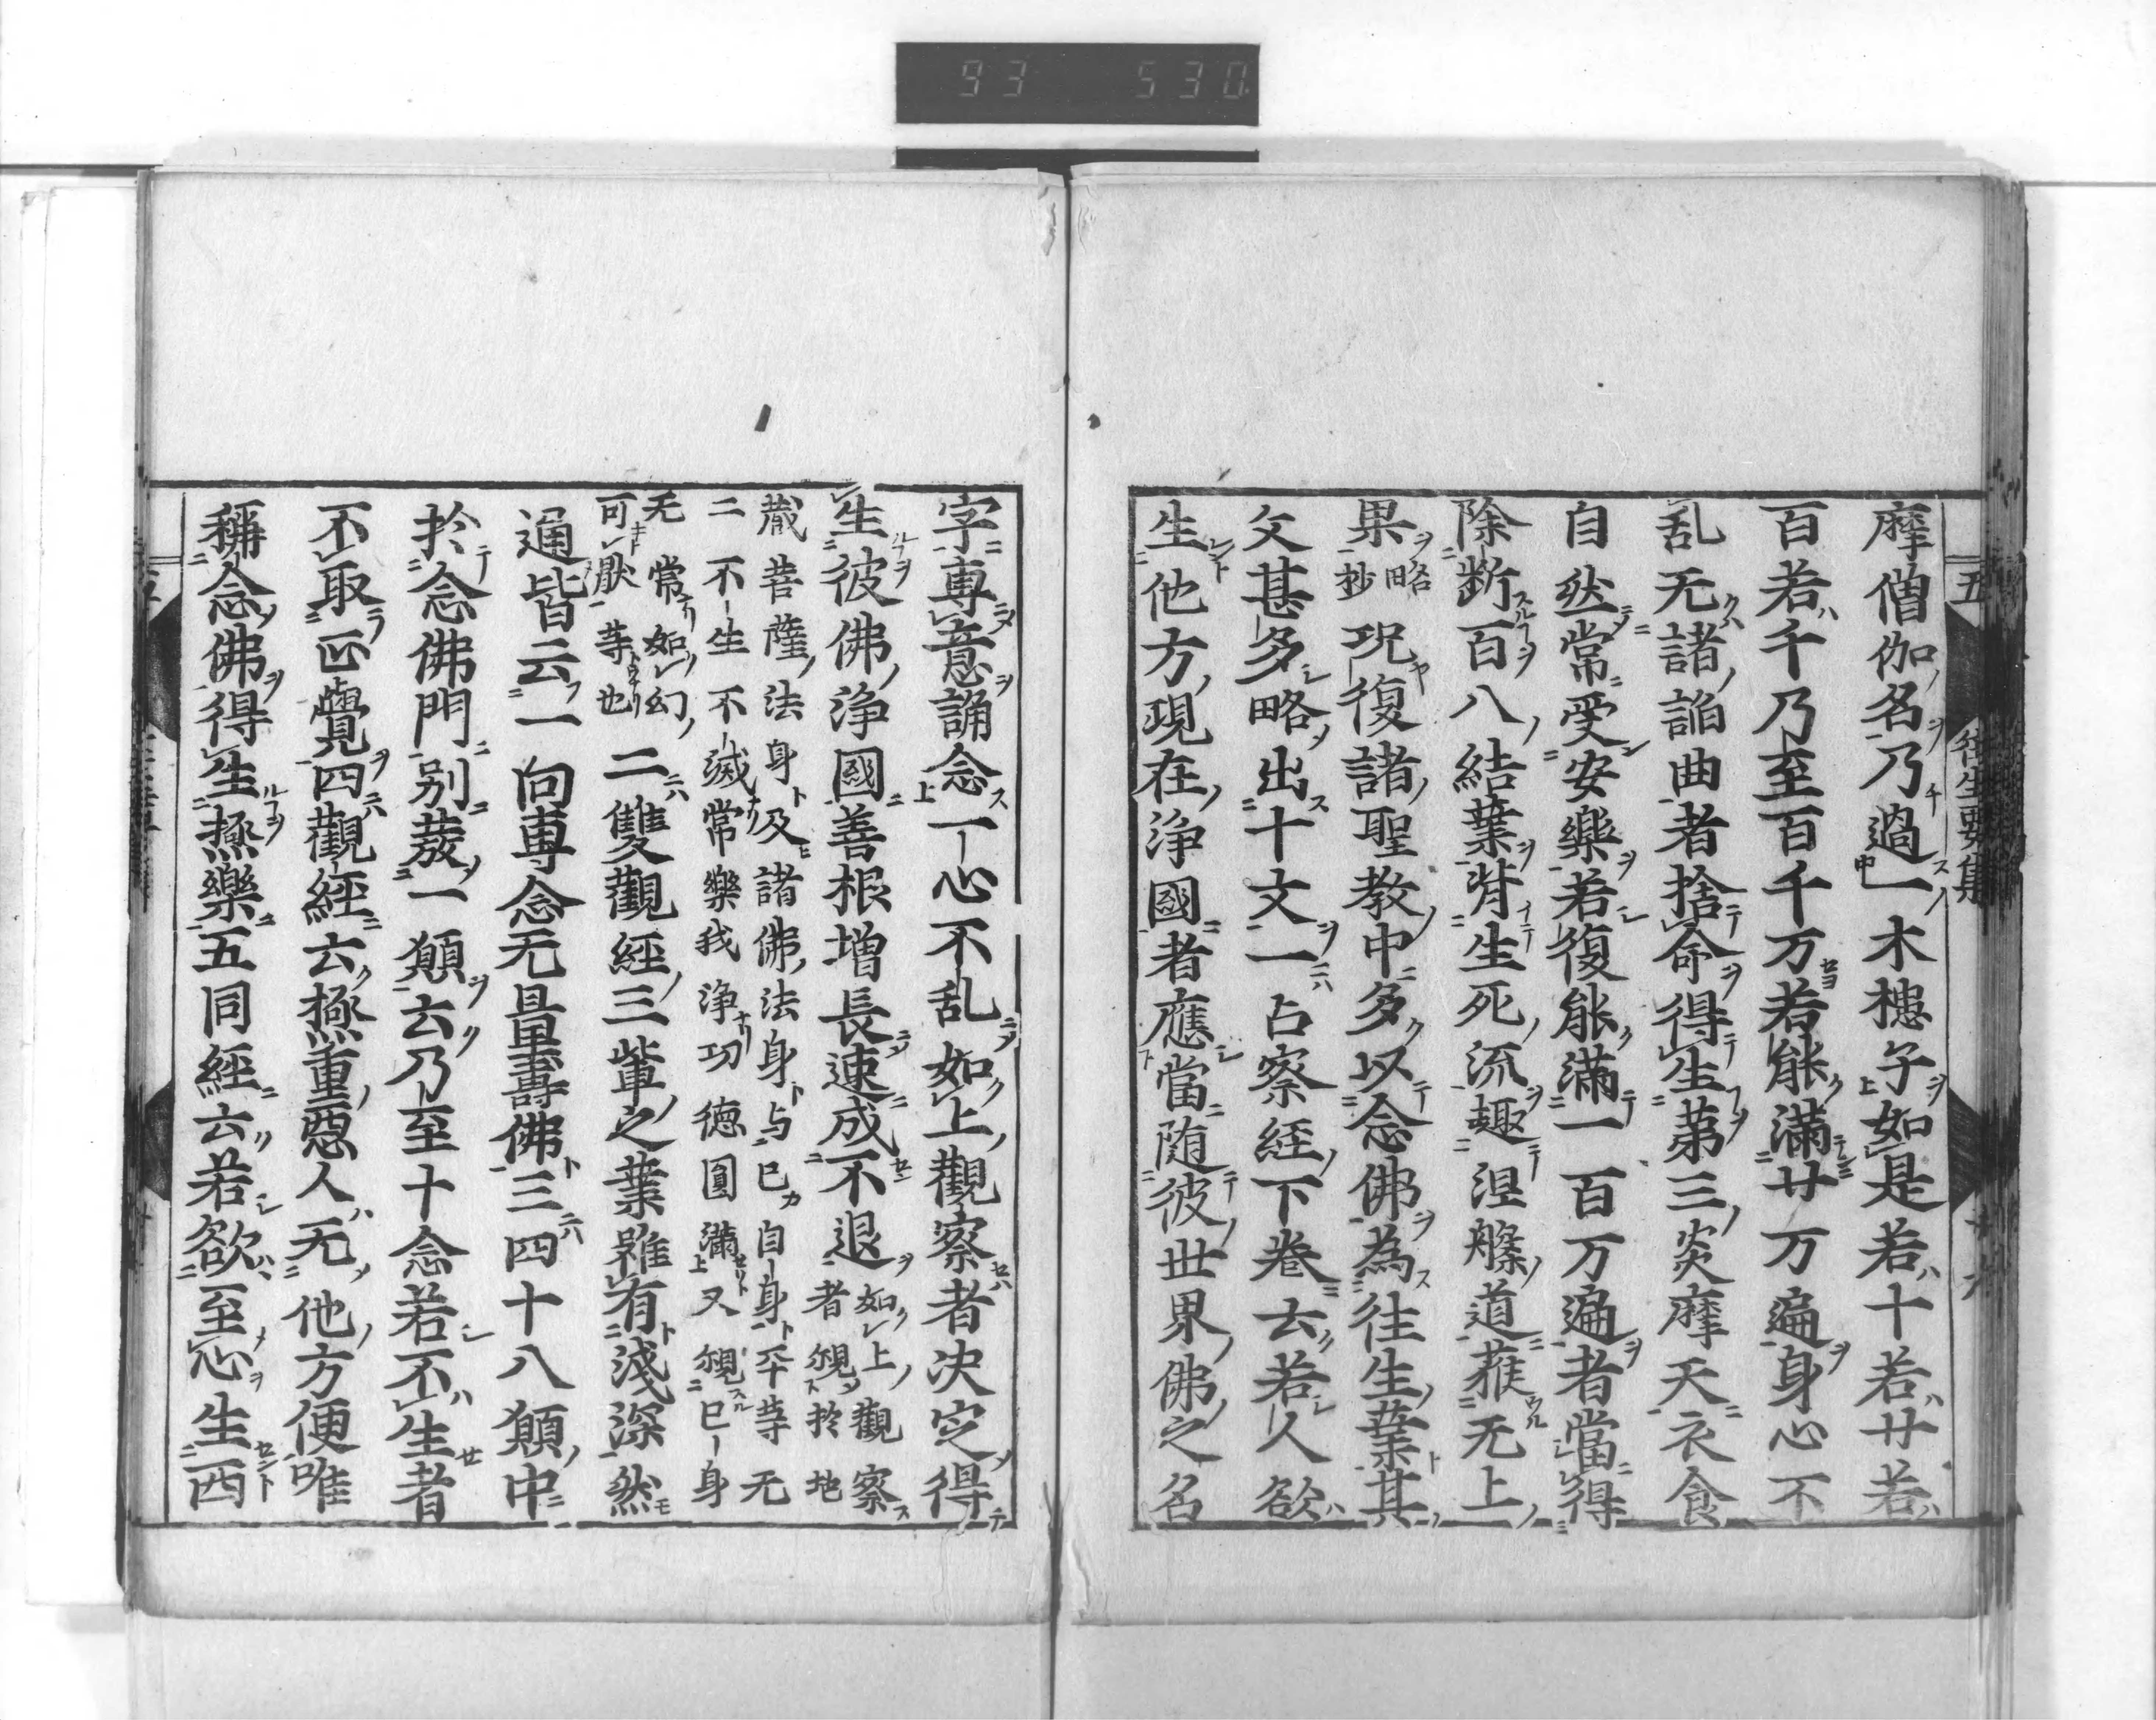 93 530
五 往生要集
摩僧伽名乃過一木槵子如是若十若廿若
百若千乃至百千万若能滿廿万遍身心不
乱无諸諂曲者捨命得生第三炎摩天衣食
自然常受安樂若復能滿一百万遍者當得
除断百八結業背生死流趣涅槃道獲无上
果略抄況復諸聖教中多以念佛為往生業其
文甚多略出十文一占察經下卷云若人欲
生他方現在淨國者應當随彼世界佛之名
字專意誦念一心不乱如上觀察者决定得
生彼佛淨國善根増長速成不退如上觀察者觀於地
藏菩薩法身及諸佛法身与已自身平等无
二不生不滅常樂我淨功德圓滿又觀已身
无常如幻可猒等也二雙觀經三輩之業雖有淺深然
通皆云一向專念无量壽佛三四十八願中
於念佛門別發一願云乃至十念若不生者
不取正覺四觀經云極重惡人无他方便唯
稱念佛得生極樂五同經云若欲至心生西